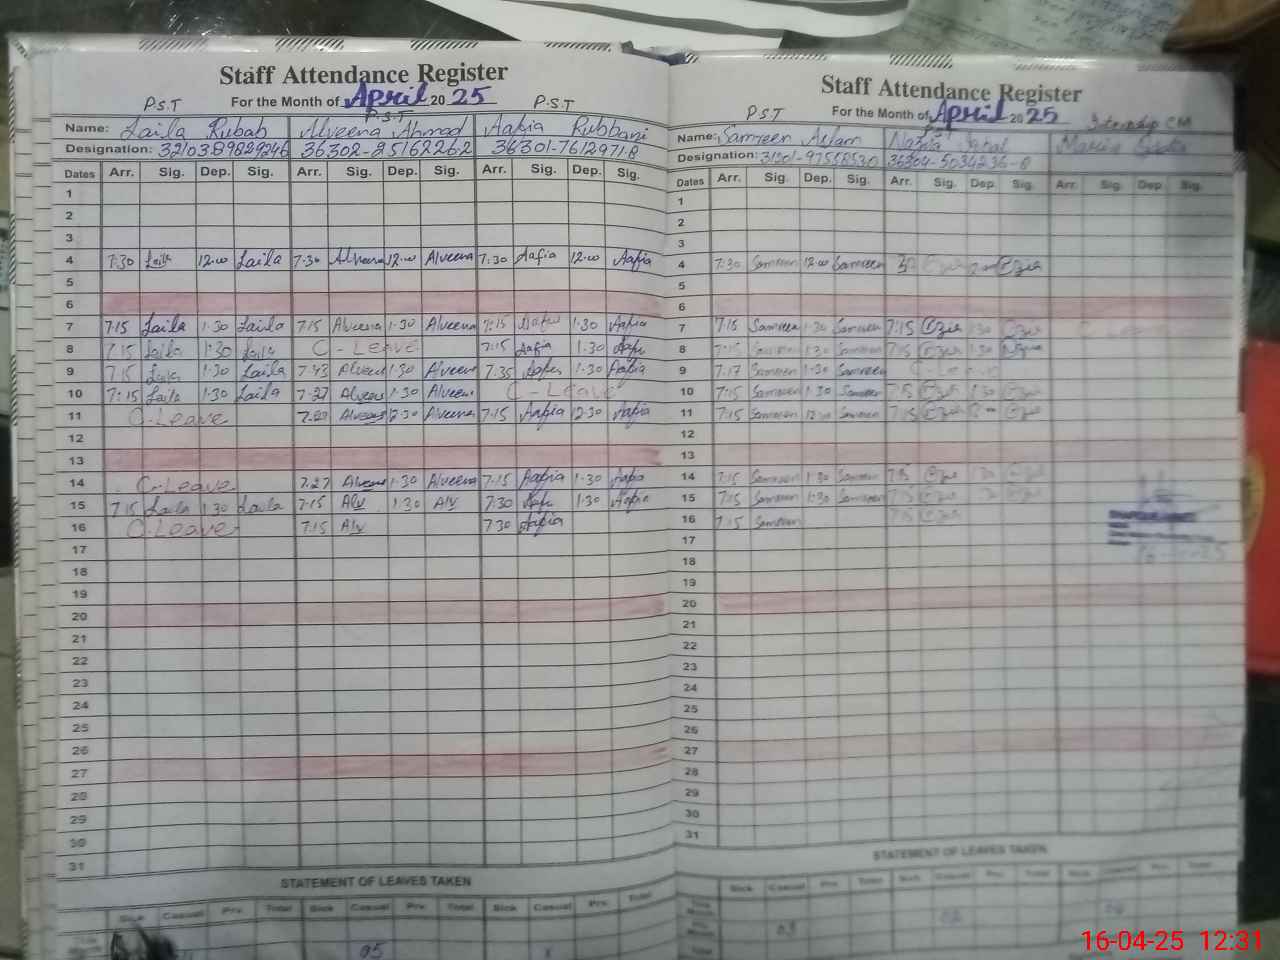 Staff Attendance Register
P.S.T For the Month of April 2025 P.S.T
P.S.T
Name: Laila Rubab Alveena Ahmad Aafia Rubbani
Designation: 36302-25162262 36301-7612971-8
Dates Arr. Sig. Dep. Sig. Arr. Sig. Dep. Sig. Arr. Sig. Dep. Sig.
1
2
3
4 7:30 Laila 12:00 Laila 7:30 Alveena 12:00 Alveena 7:30 Aafia 12:00 Aafia
5
6
7 7:15 Laila 1:30 Laila 7:15 Alveena 1:30 Alveena 7:15 Aafia 1:30 Aafia
8 7:15 Laila 1:30 Laila C-Leave 7:15 Aafia 1:30 Aafia
9 7:15 Laila 1:30 Laila 7:43 Alveena 1:30 Alveena 7:35 Aafia 1:30 Aafia
10 7:15 Laila 1:30 Laila 7:37 Alveena 1:30 Alveena C-Leave
11 C-Leave Alveena 12:30 Alveena 7:15 Aafia 12:30 Aafia
12
13
14 C-Leave 7:27 Alveena 1:30 Alveena 7:15 Aafia 1:30 Aafia
15 7:15 Laila 1:30 Laila 7:15 Alv 1:30 Alv 7:30 Aafia 1:30 Aafia
16 C-Leave 7:15 Alv 7:30 Aafia
17
18
19
20
21
22
23
24
25
26
27
28
29
30
31
STATEMENT OF LEAVES TAKEN
Sick Casual Prv. Total Sick Casual Prv. Total Sick Casual Prv. Total
05
Staff Attendance Register
P.S.T For the Month of April 2025 Internship CM
Name: Samreen Aslam Nazia Iqbal
Designation: 36304-5034236-8
Dates Arr. Sig. Dep. Sig. Arr. Sig. Dep. Sig. Arr. Sig. Dep. Sig.
1
2
3
4 7:30 Samreen 12:00 Samreen
5
6
7 7:15 Samreen 1:30 Samreen 7:15 1:30 C-Leave
8 7:15 Samreen 1:30 Samreen 7:15 1:30
9 7:17 Samreen 1:30 Samreen C-Leave
10 7:15 Samreen 1:30 Samreen 7:15 1:30
11 7:15 Samreen Samreen 7:15
12
13
14 7:15 Samreen 1:30 Samreen 1:30
15 7:15 Samreen 1:30 Samreen 7:15
16 7:15 Samreen 7:15
17
18
19
20
21
22
23
24
25
26
27
28
29
30
31
STATEMENT OF LEAVES TAKEN
Sick Casual Prv. Total Sick Casual Prv. Total Sick Casual Prv. Total
03
Total
16-04-25 12:31